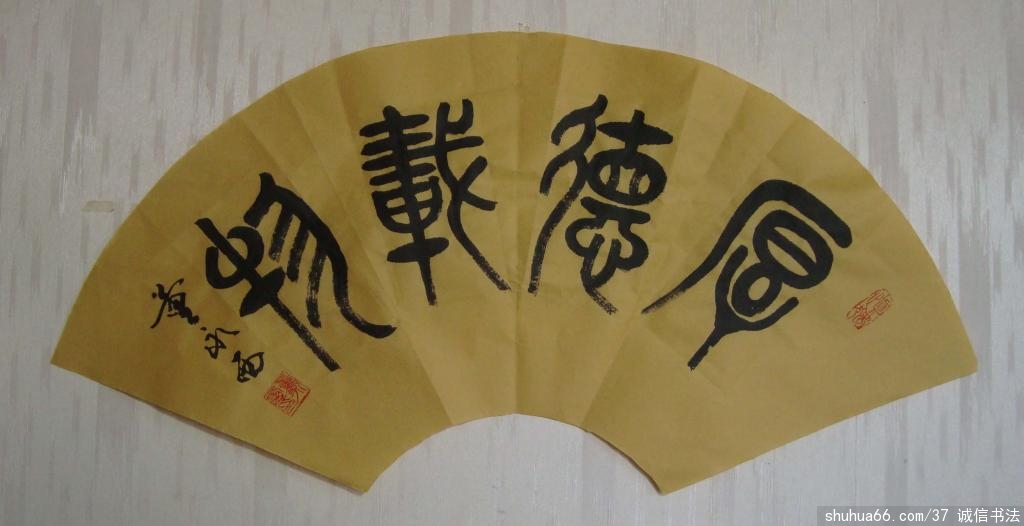 厚德載物
shuhua66.com/37 诚信书法